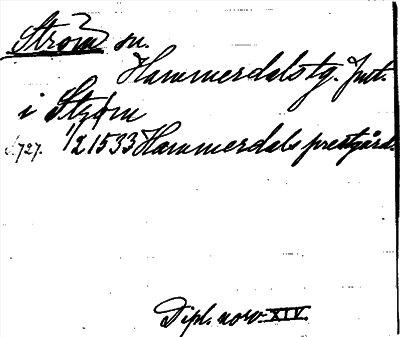 Ström sn.
Hammerdals tg. Jmt.
i Strøm
S. 727. 1/2 1533 Hammerdals prestgård.
Dipl. norv. XIV.